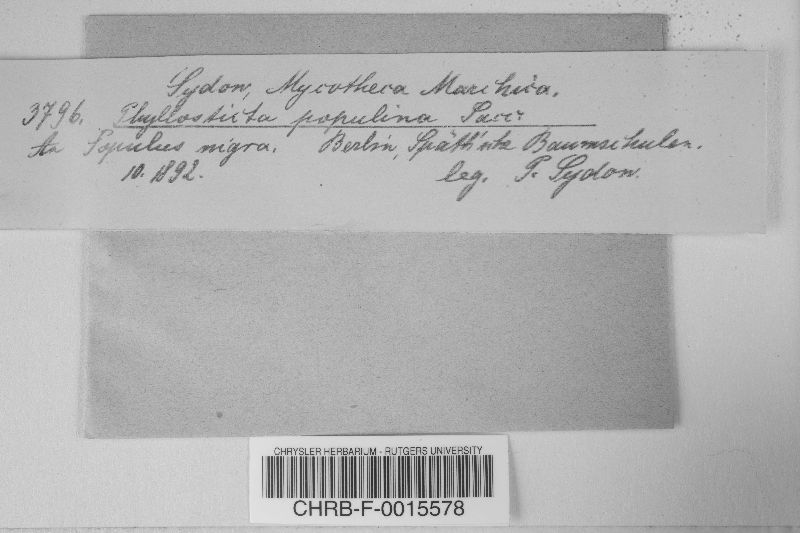 Sydow, Mycotheca Marchica.
3796. Phyllosticta populina Sacc.
An Populus nigra. Berlin, Späth'sche Baumschulen.
10. 1892. leg. P. Sydow.
CHRYSLER HERBARIUM - RUTGERS UNIVERSITY
CHRB-F-0015578